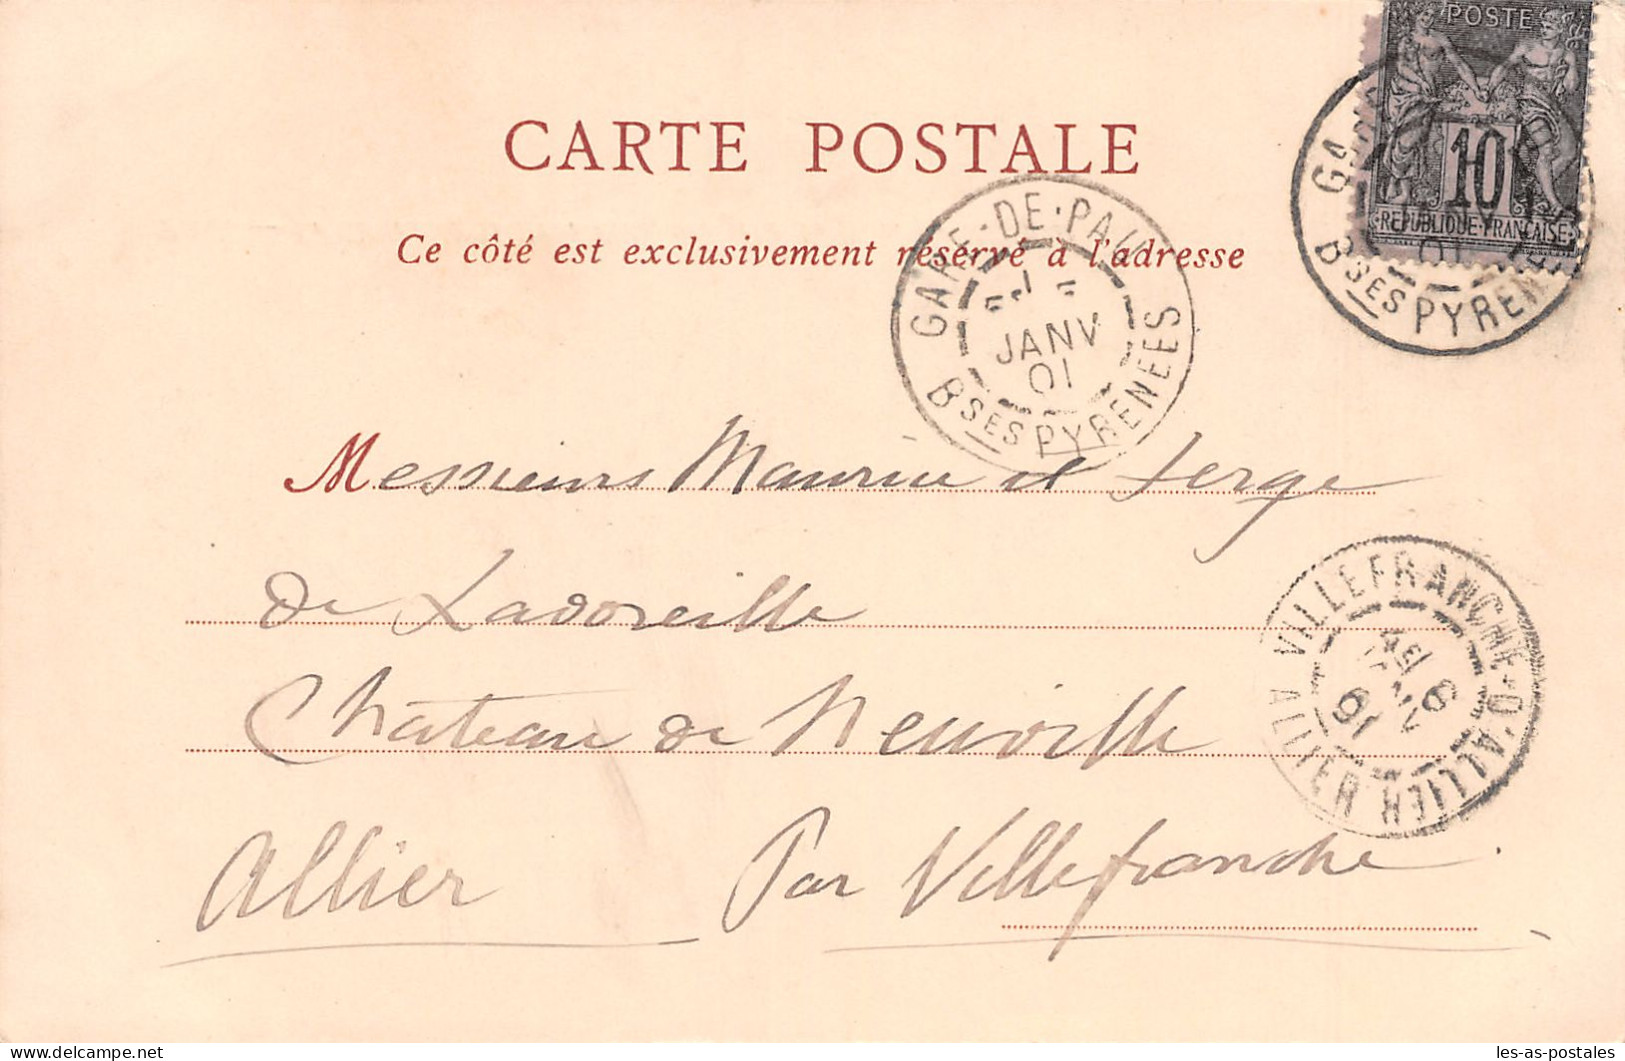 POSTE
10
RÉPUBLIQUE FRANÇAISE
CARTE POSTALE
Ce côté est exclusivement réservé à l'adresse
GARE-DE-PAU
JANV
01
BSES PYRENEES
BSES PYRENEES
01
Messieurs Maurice et Serge
de Ladoreille
Château de Neuville
Allier Par Villefranche
VILLEFRANCHE-D'ALLIER
6
01
ALLIER
les-as-postales